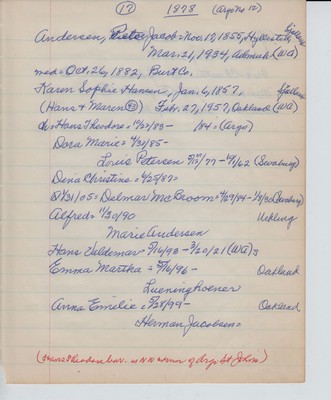 (17) 1878 (Argo No 12)
Andersen, Peter Jacob = Nov. 17, 1855,
Mar. 21, 1934, (WA)
med = Oct, 26, 1882, Burt Co.
Karen Sophie Hansen, Jan, 6, 1857,
(Hans & Maren) Feb. 27, 1957, Oakland (WA)
ch: Hans Theodore = 10/27/83 - /84 = (Argo)
Dora Marie = 4/30/85 -
Louis Petersen = /77 - 9/1/62 (Swaburg)
Dena Christina = 4/25/87 =
8/31/05 = Delmar Mc Broom = 4/29/84 - 1/8/30 (Swaburg)
Alfred = 11/30/90 Uehling
Marie Andersen
Hans Valdemar = 5/16/93 - 3/20/21 (WA)
Emma Martha = /16/96 - Oakland
Lueninghoener
Anna Emilie = 5/28/99 - Oakland
Herman Jacobsen =
(Hans Theodore bur. is N.W. corner of Argo St Johns)